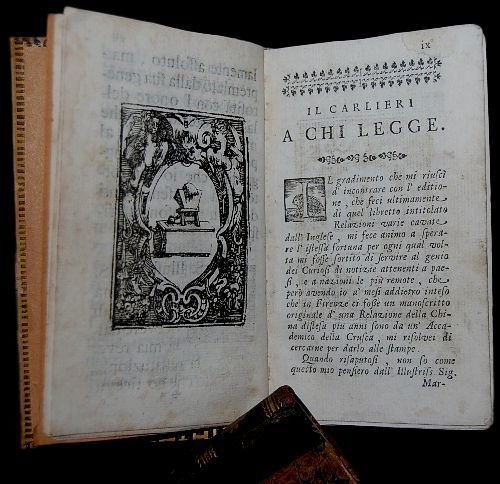 ix
IL CARLIERI
A CHI LEGGE.
IL gradimento che mi riuscì
d' incontrare con l' editio-
ne, che feci ultimamente
di quel libretto intitolato
Relazioni varie cavate
dall' Inglese, mi fece animo a spera-
re l' istessa fortuna per ogni qual vol-
ta mi fosse sortito di servire al genio
dei Curiosi di notizie attenenti a pae-
si, e a nazioni le più remote, che
però avendo io a' mesi addietro inteso
che in Firenze ci fosse un manuscritto
originale d' una Relazione della Chi-
na distesa più anni sono da un' Acca-
demico della Crusca, mi risolvei di
cercarne per darlo alle stampe.
Quando risaputosi, non so come
questo mio pensiero dall' Illustriss. Sig.
Mar-